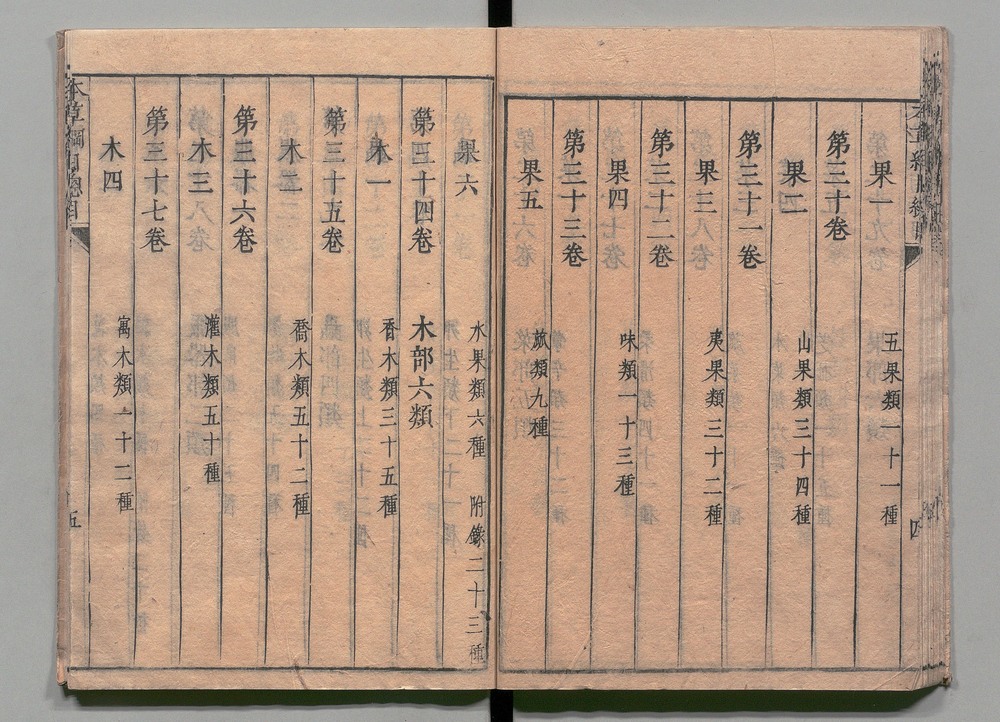 果一　五果類一十一種
第三十卷
果二　山果類三十四種
第三十一卷
果三　夷果類三十二種
第三十二卷
果四　味類一十三種
第三十三卷
果五　蓏類九種
四
果六　水果類六種　附錄二十三種
第三十四卷　木部六類
木一　香木類三十五種
第三十五卷
木二　喬木類五十二種
第三十六卷
木三　灌木類五十種
第三十七卷
木四　寓木類一十二種
本草綱目總目
五